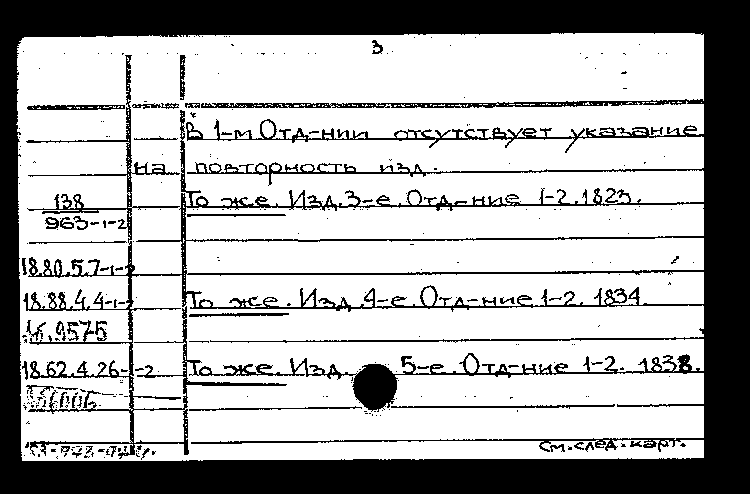 3
В 1-м Отд-нии отсутствует указание
на повторность изд.
138
963-1-2
То же. Изд. 3-е. Отд-ние 1-2. 1823.
18.80.5.7-1-2
18.88.4.4-1-2 То же. Изд. 4-е. Отд-ние 1-2. 1834.
9575
18.62.4.26-1-2 То же. Изд. 5-е. Отд-ние 1-2. 1838.
См. след. карт.